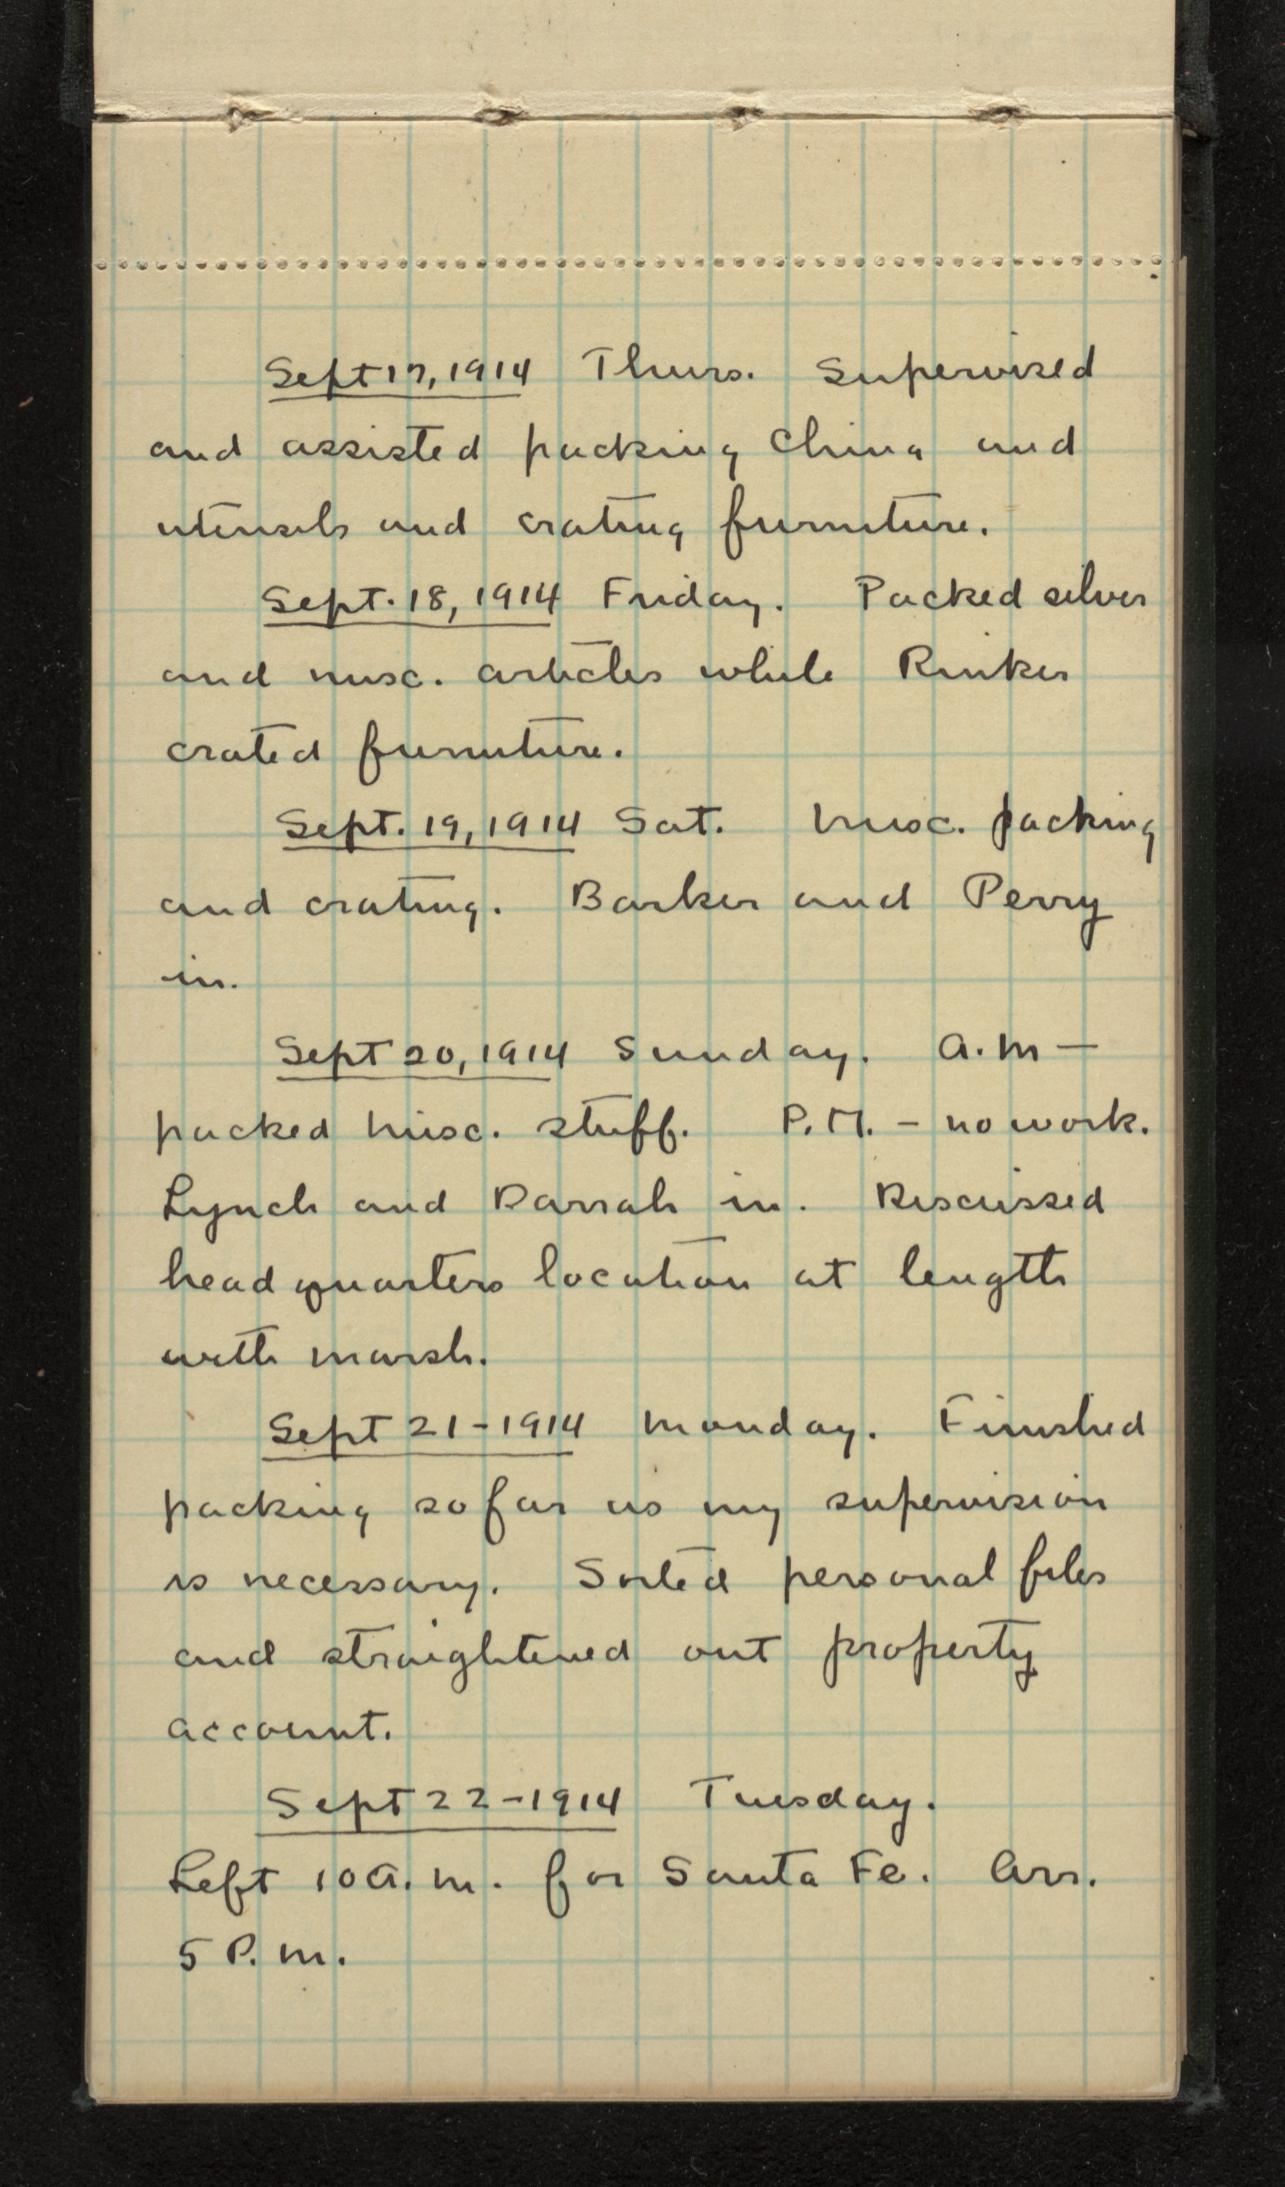 Sept 17, 1914 Thurs. Supervised
and assisted packing China and
utensils and crating furniture.
Sept. 18, 1914 Friday. Packed silver
and misc. articles while Rinker
crated furniture.
Sept. 19, 1914 Sat. Misc. packing
and crating. Barker and Perry
in.
Sept 20, 1914 Sunday. A.M —
packed misc. stuff. P.M. – no work.
Lynch and Darrah in. Discussed
headquarters location at length
with Marsh.
Sept 21-1914 Monday. Finished
packing so far as my supervision
is necessary. Sorted personal files
and straightened out property
account.
Sept 22-1914 Tuesday.
Left 10 A.M. for Santa Fe. Arr.
5 P.M.